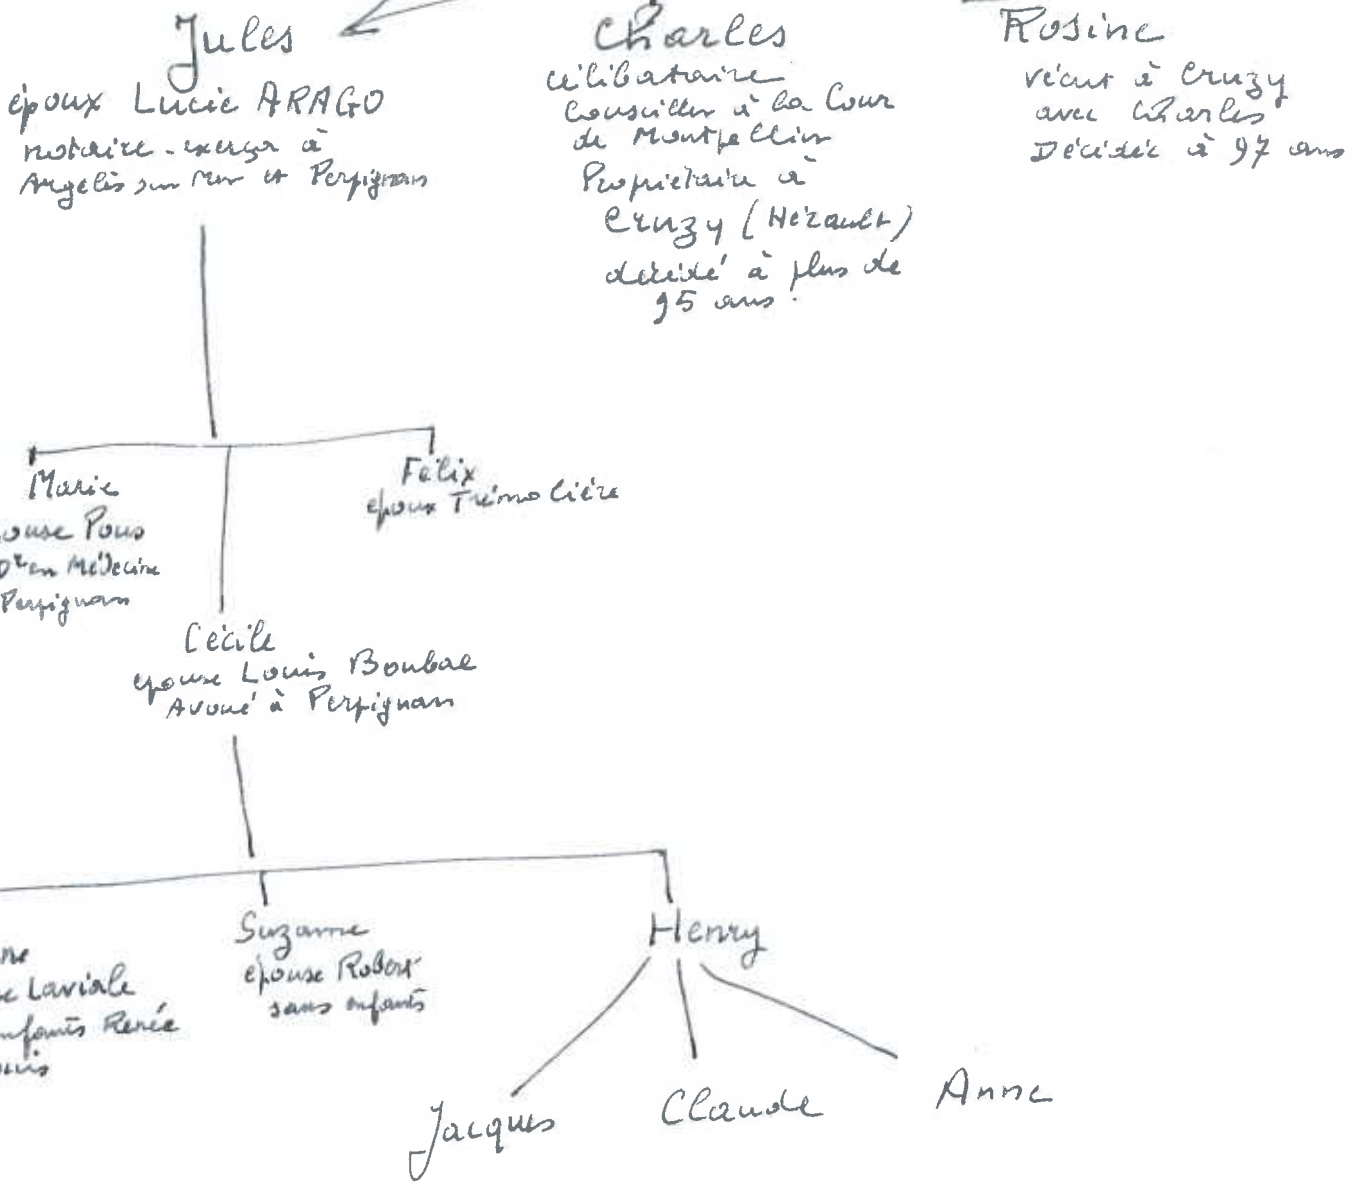 Jules
époux Lucie ARAGO
notaire - exerça à
Argelès sur Mer et Perpignan
Charles
célibataire
Conseiller à la Cour
de Montpellier
Propriétaire à
Cruzy (Hérault)
décédé à plus de
95 ans.
Rosine
vécut à Cruzy
avec Charles
Décédée à 97 ans
Marie
ouse Pous
Dr en Médecine
Perpignan
Félix
époux Trémolière
Cécile
epouse Louis Boubal
Avoué à Perpignan
ne
se Laviale
enfants Renée
ouis
Suzanne
épouse Robert
sans enfants
Henry
Jacques
Claude
Anne